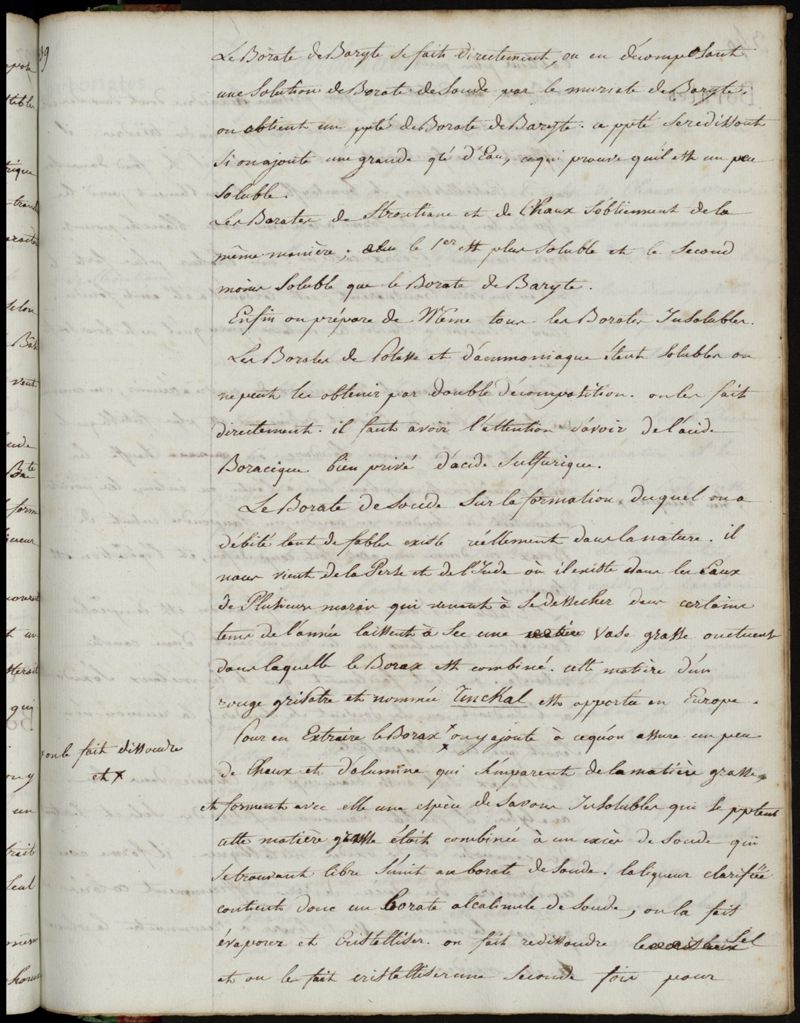 Le Borate de Baryte se fait directement, ou en décomposant
une solution de Borate de Soude par le muriate de Baryte.
on obtient un ppté de Borate de Baryte. ce ppté se redissout
si on ajoute une grande qté d'Eau, ce qui prouve qu'il est un peu
soluble.
Les Borates de Strontiane et de Chaux s'obtiennent de la
même manière, le 1er est plus soluble et le second
moins soluble que le Borate de Baryte.
Enfin on prépare de Même tous les Borates Insolubles.
Les Borates de Potasse et d'ammoniaque étant solubles on
ne peut les obtenir par double décomposition. on les fait
directement. il faut avoir l'attention d'avoir de l'acide
Boracique bien privé d'acide sulfurique.
Le Borate de soude sur la formation duquel on a
débité tant de fables existe réellement dans la nature. il
nous vient de la Perse et de l'Inde où il existe dans les Eaux
de Plusieurs marais qui venant à se dessecher dans certains
tems de l'année laissent à sec une vase grasse onctueuse
dans laquelle le Borax est combiné. cette matière d'un
rouge grisatre et nommée Tinckal est apportée en Europe.
Pour en Extraire le Borax x on y ajoute à ce qu'on assure un peu
x on le fait dissoudre
et x
de Chaux et d'alumine qui s'emparent de la matière grasse,
et forment avec elle une espèce de savon Insoluble qui se pptent
cette matière grasse étoit combinée à un excès de soude qui
se trouvant libre s'unit au borate de soude. la liqueur clarifiée
contient donc un borate alcalinule de soude, on la fait
évaporer et cristalliser. on fait redissoudre le sel
et on le fait cristalliser une seconde fois pour